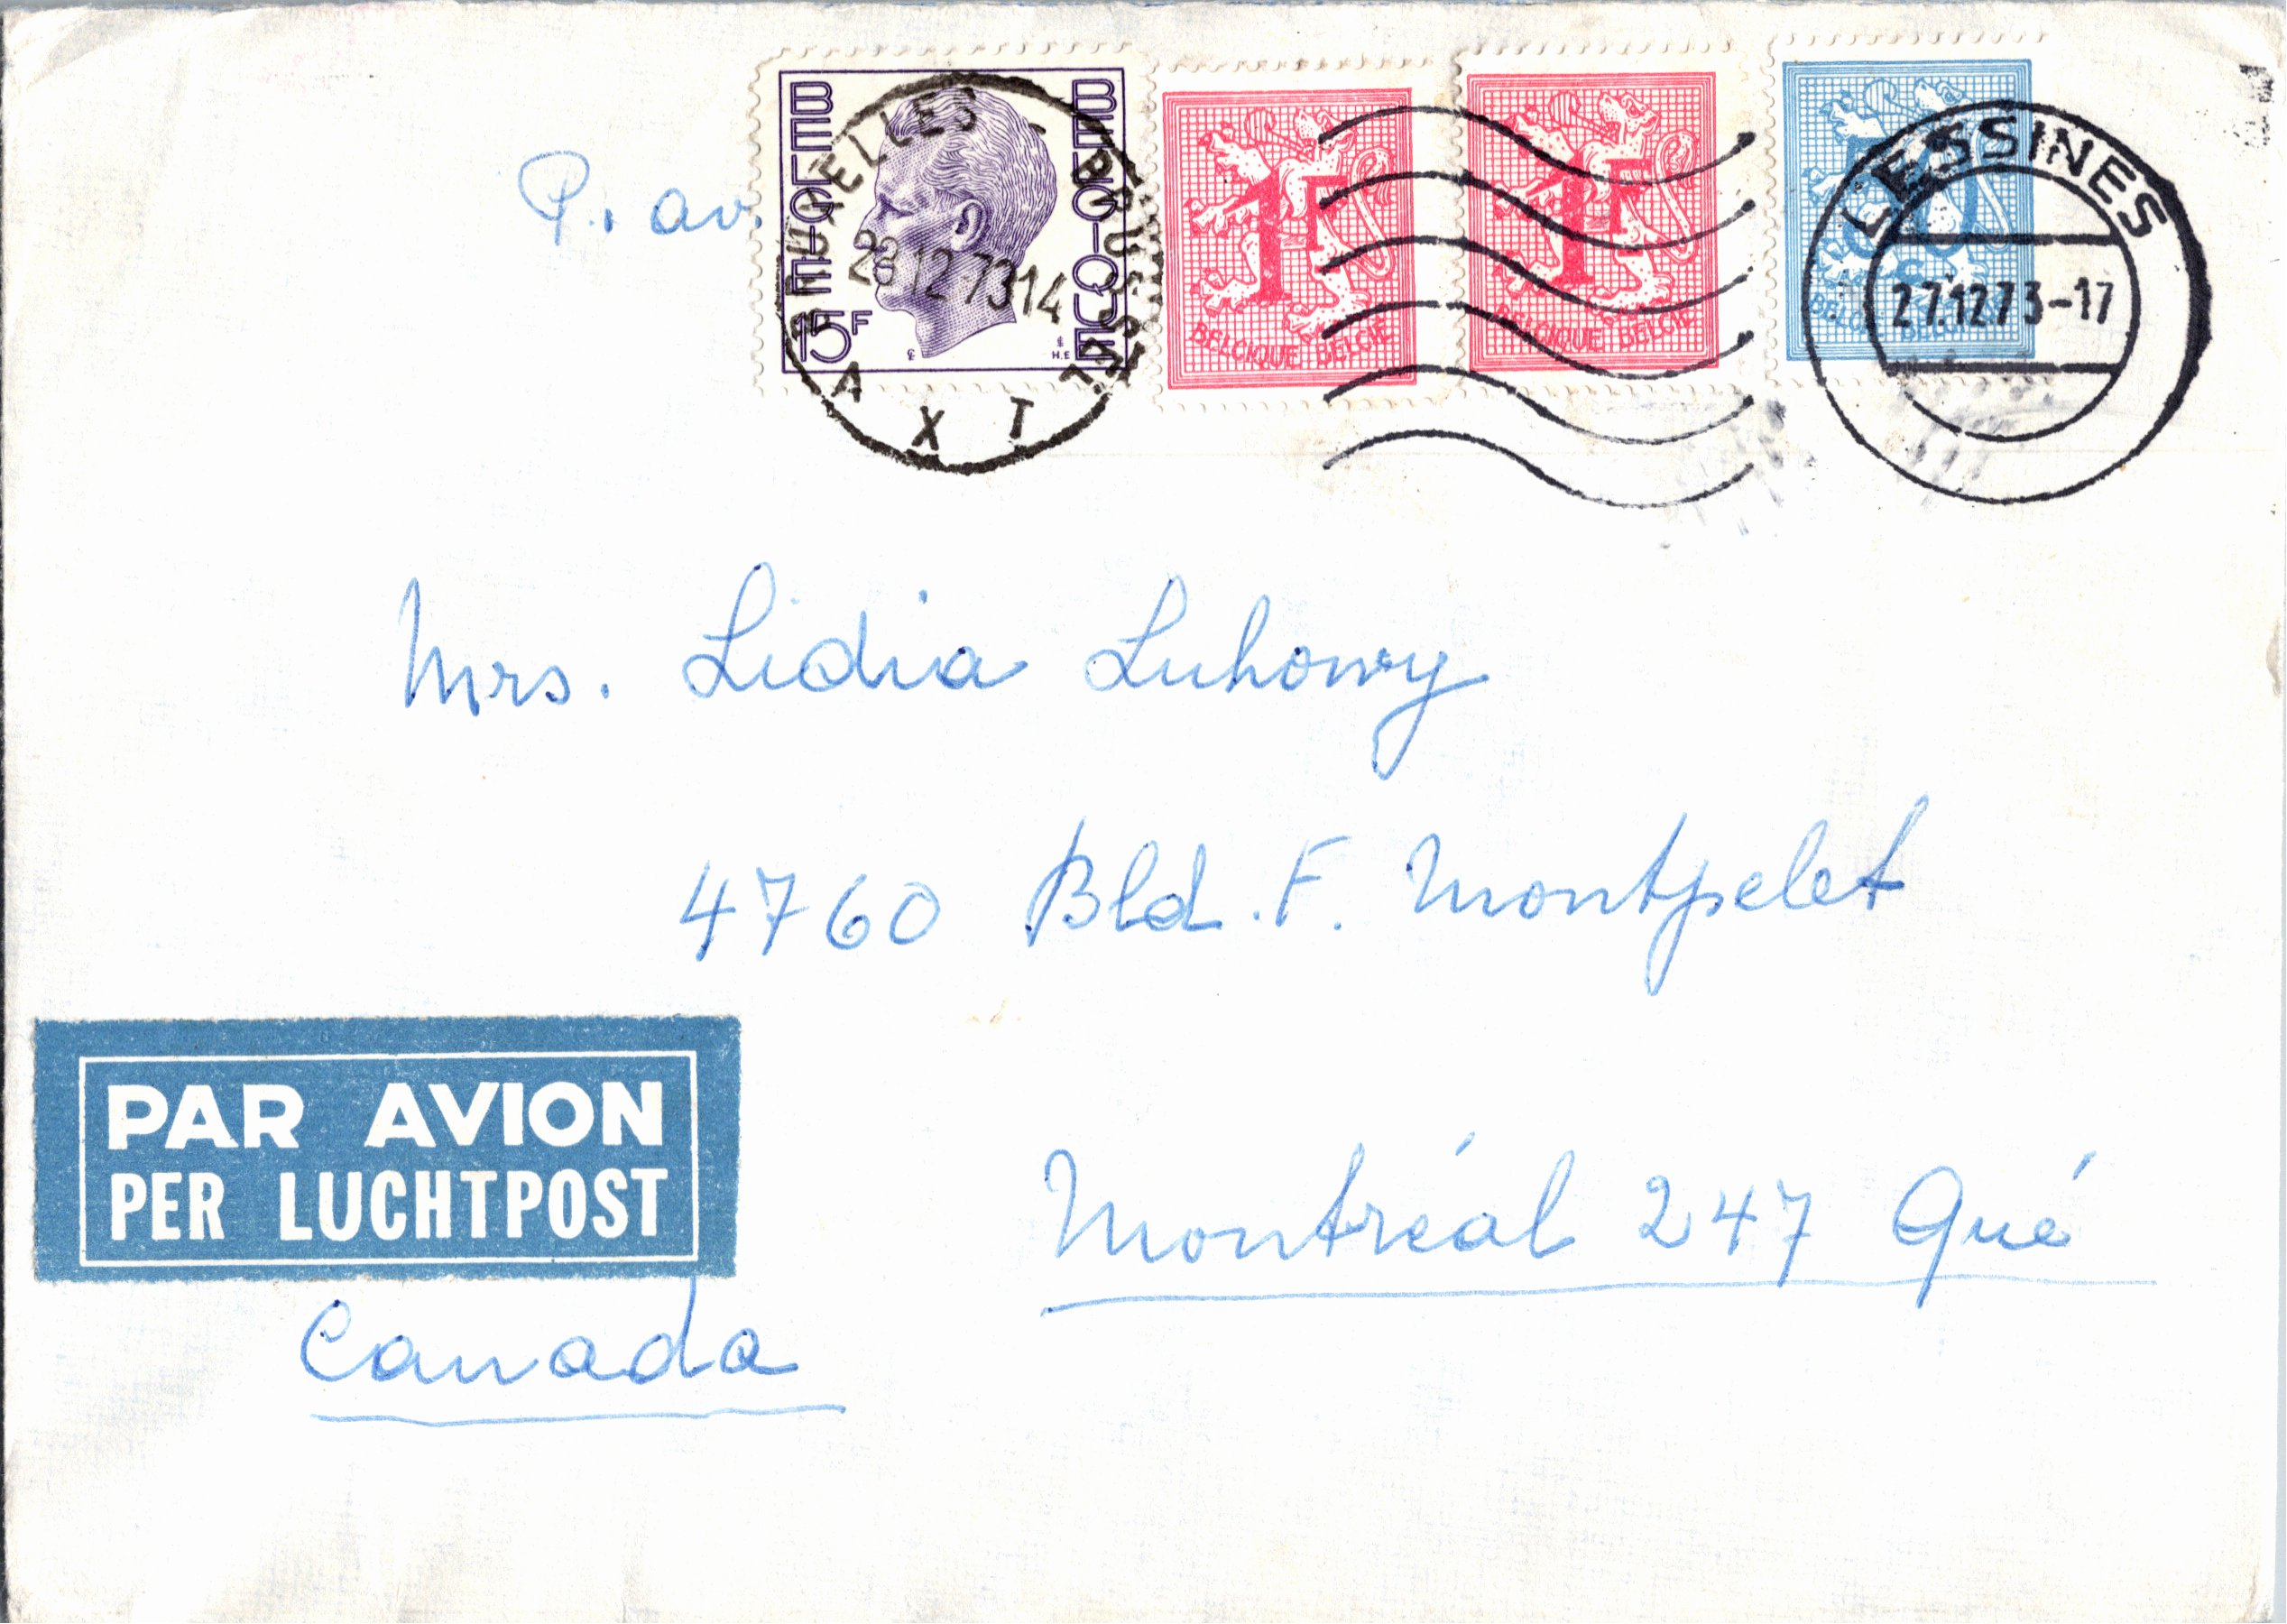 P. av
BELGIE
15F
BELGIQUE
BRUXELLES - BRUSSEL
28-12-73 14
A X T
1F
BELGIQUE BELGIE
1F
BELGIQUE BELGIE
50
LESSINES
27.12.73-17
Mrs. Lidia Luhowy
4760 Bld. F. Montpelet
PAR AVION
PER LUCHTPOST
Montréal 247 Qué
Canada